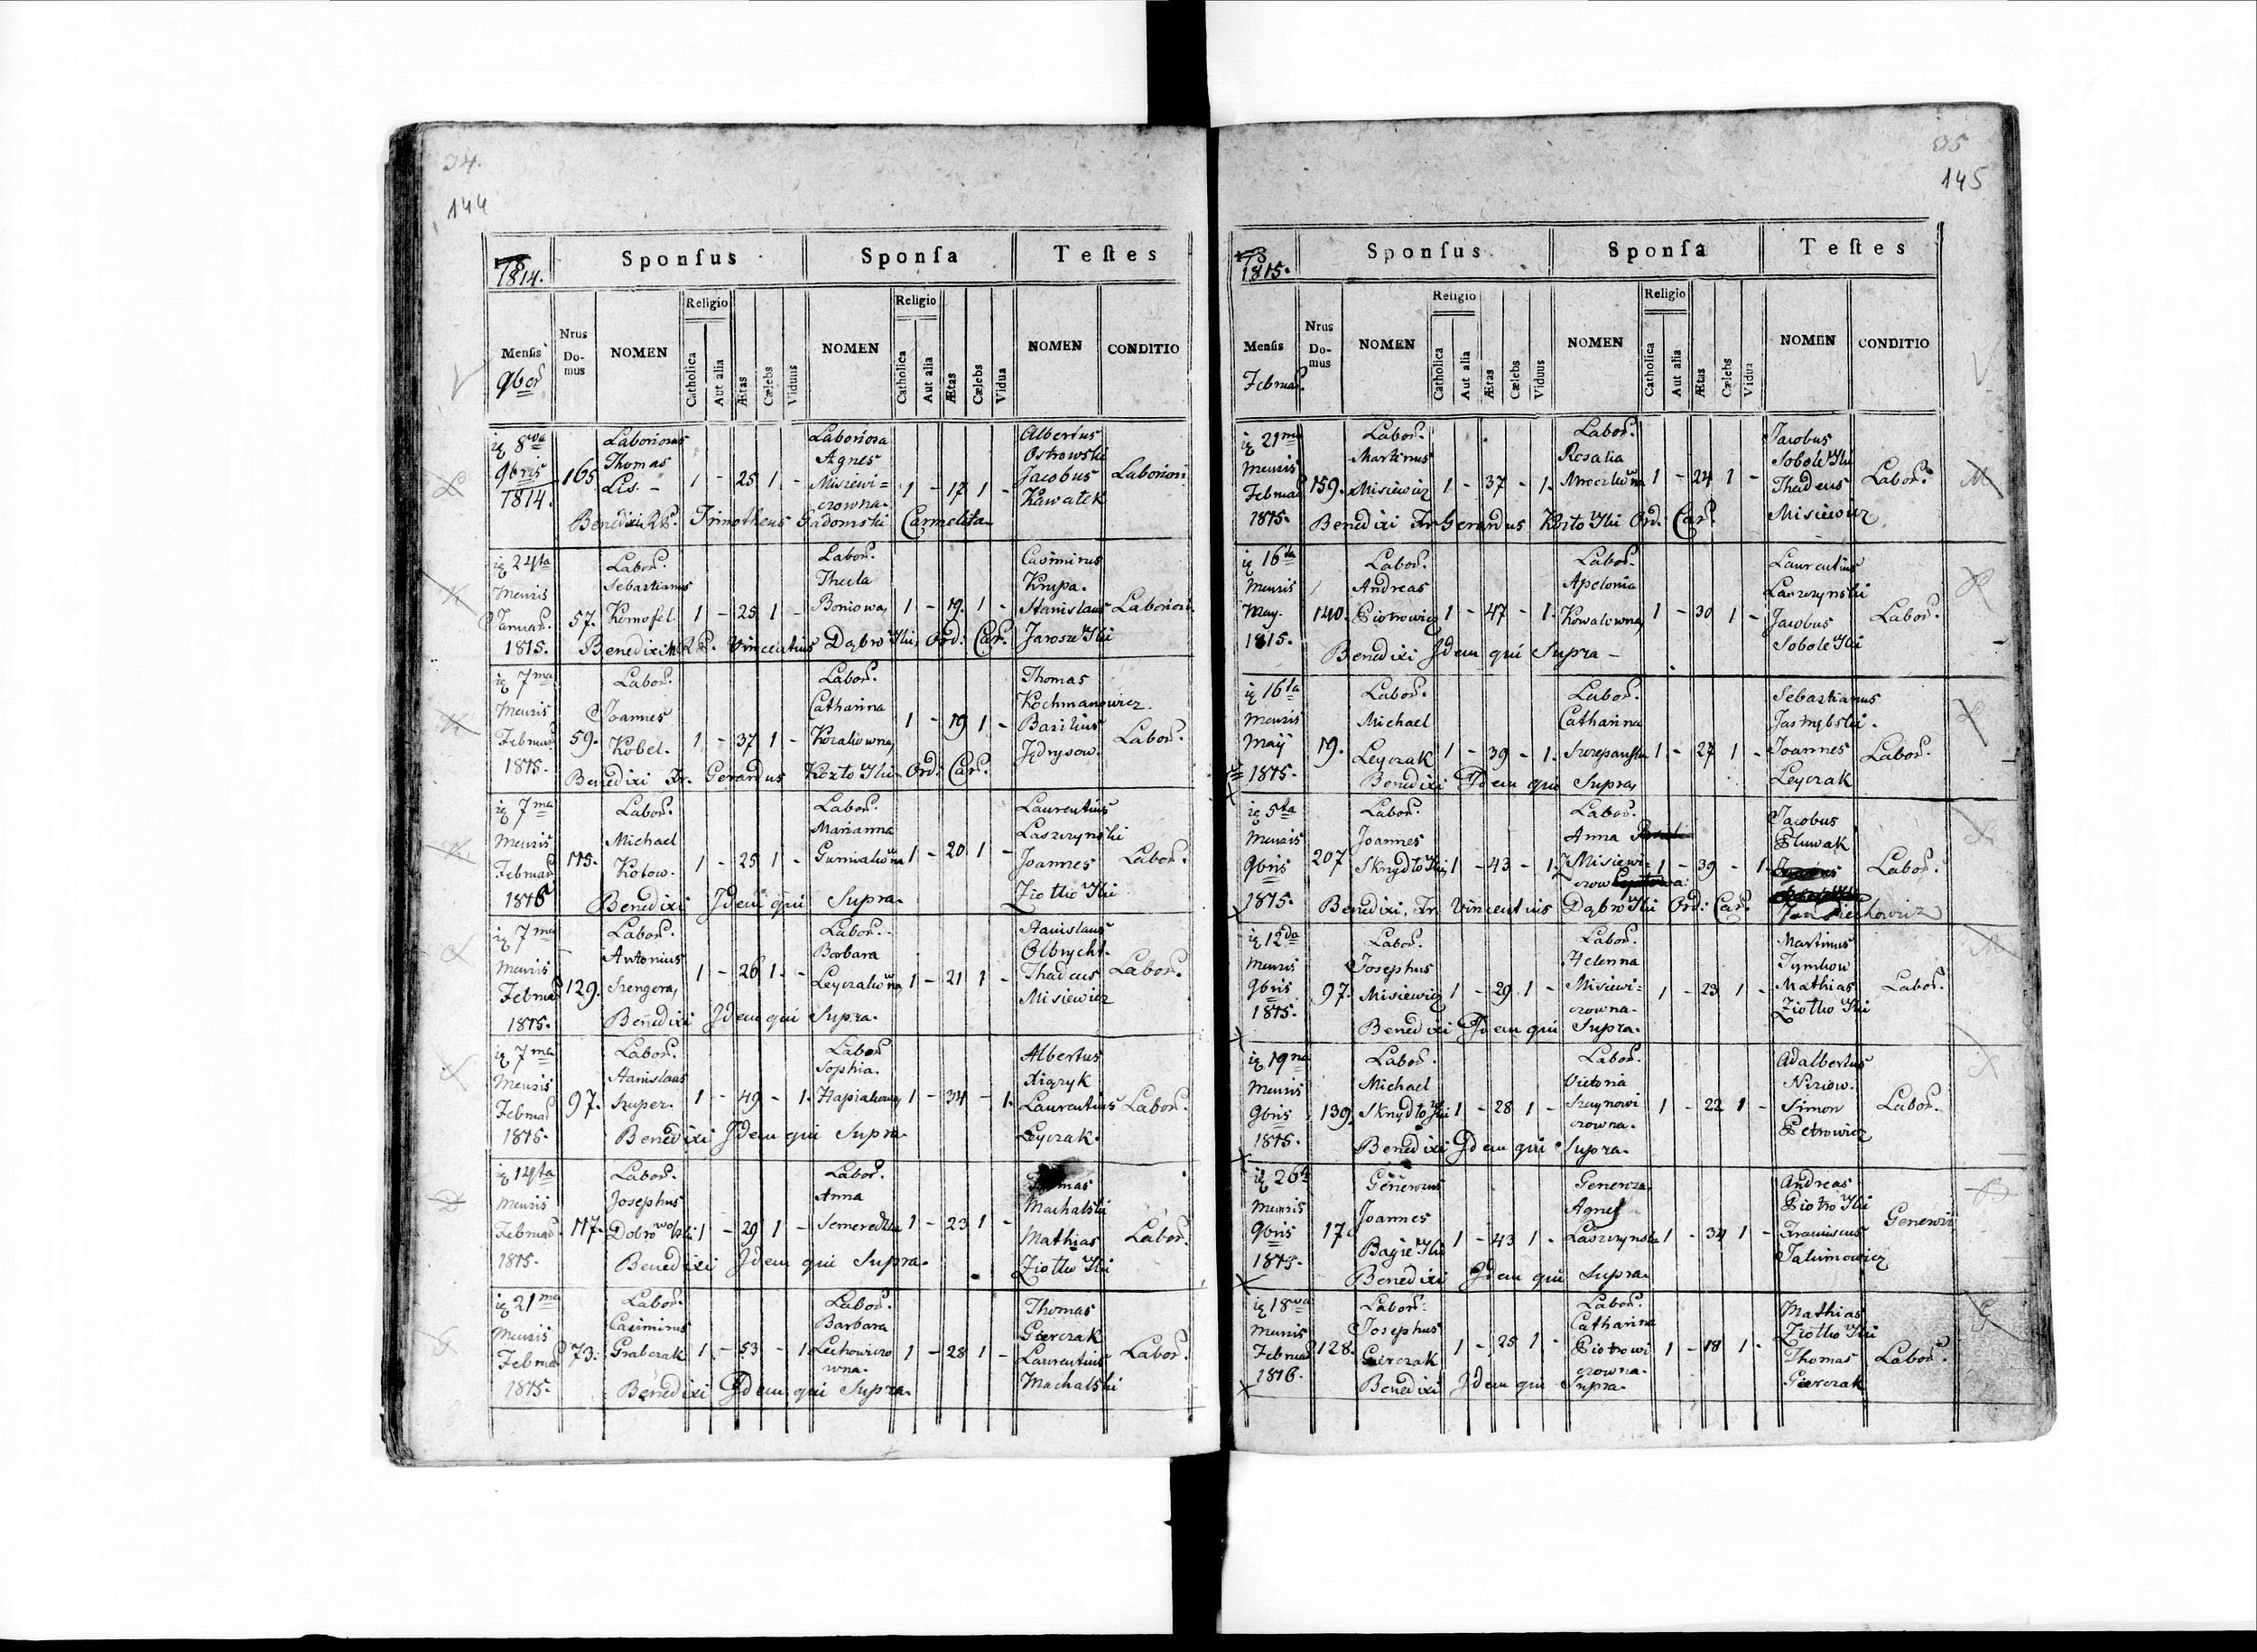 34.
144
1814.
Sponſus
Sponſa
Teſtes
Menſis
9bris
Nrus Do-mus
NOMEN
Religio
Catholica
Aut alia
Ætas
Cælebs
Viduus
NOMEN
Religio
Catholica
Aut alia
Ætas
Cælebs
Vidua
NOMEN
CONDITIO
8va 9bris 1814. 165 Laboriosus Thomas Lis. 1 - 25 1 - Laboriosa Agnes Misiewi=czowna. 1 - 17 1 - Albertus Ostrowski Jacobus Kawałek Laboriosi
Benedixi Timotheus Gadomski Carmelita
24ta Mensis Januar. 1815. 57. Labor. Sebastianus Kornofel 1 - 25 1 - Labor. Thecla 1 - 19 1 - Casimirus Krupa. Stanislaus Laboriosi
Benedixit Vincentius Dąbrowski Ord: Car.
7ma Mensis Februar 1815. 59. Labor. Joannes Kobel. 1 - 37 1 - Labor. Catharina 1 - 19 1 - Thomas Kochmanowicz. Basilius Jędrysow. Labor.
Benedixi Fr. Gerardus Ord: Car.
7ma Mensis Februar 175. Labor. Michael Kotow. 1 - 25 1 - Labor. Marianna 1 - 20 1 - Laurentius Laszczynski Joannes Ziołkowski Labor.
Benedixi Idem qui Supra.
7ma Mensis Februar 1815. 129. Labor. Antonius Szengera 1 - 26 1 - Labor. Barbara 1 - 21 1 - Stanislaus Olbrycht. Thadeus Misiewicz Labor.
Benedixi Idem qui Supra.
7ma Mensis Februar 1815. 97. Labor. Stanislaus Kuper. 1 - 49 - 1. Labor Sophia. 1 - 34 - 1. Albertus Laurentius Leyczak. Labor.
Benedixi Idem qui Supra
14ta Mensis Februar 1815. 117. Labor. Josephus 1 - 29 1 - Labor. Anna 1 - 23 1 - Thomas Machalski Mathias Ziołkowski Labor.
Benedixi Idem qui Supra.
21ma Mensis Februar 1815. 73. Labor. Casimirus Grabczak 1 - 53 - 1 Labor. Barbara Lechowiczowna. 1 - 28 1 - Thomas Gierczak Laurentius Machalski Labor.
Benedixi Idem qui Supra.
35
145
1815.
Sponſus
Sponſa
Teſtes
Menſis
Februar.
Nrus Do-mus
NOMEN
Religio
Catholica
Aut alia
Ætas
Cælebs
Viduus
NOMEN
Religio
Catholica
Aut alia
Ætas
Cælebs
Vidua
NOMEN
CONDITIO
21ma Mensis Februar 1815. 159. Labor. Martinus Misiewicz 1 - 37 - 1. Labor. Rosalia 1 - 24 1 - Jacobus Sobolewski Thadeus Misiewicz Labor.
Benedixi Fr Gerardus Ord: Car.
16ta Mensis May. 1815. 140. Labor. Andreas Piotrowicz 1 - 47 - 1. Labor. Apolonia Kowalowna 1 - 30 1 - Laurentius Laszczynski Jacobus Sobolewski Labor.
Benedixi Idem qui Supra -
16ta Mensis Maÿ 1815. 19. Labor. Michael Leyczak 1 - 39 - 1. Labor. Catharina 1 - 27 1 - Sebastianus Joannes Leyczak Labor.
Benedixi Idem qui Supra
5ta Mensis 9bris 1815. 207 Labor. Joannes Skrydłowski 1 - 43 - 1. Labor. Anna Misiewi=czow 1 - 39 - 1. Jacobus Pluwak Labor.
Benedixi, Fr. Vincentius Dąbrowski Ord: Car.
12da Mensis 9bris 1815. 97. Labor. Josephus Misiewicz 1 - 29 1 - Labor. Helenna Misiewi=czowna. 1 - 23 1 - Martinus Tymkow Mathias Ziołkowski Labor.
Benedixi Idem qui Supra.
19na Mensis 9bris 1815. 139. Labor. Michael Skrydłowski 1 - 28 1 - Labor. Victoria 1 - 22 1 - Adalbertus Simon Petrowicz Labor.
Benedixi Idem qui Supra.
26ta Mensis 9bris 1815. 17 Generosus Joannes Bagiewski 1 - 43 1 - Generosa Agnes Laszczynska 1 - 34 1 - Andreas Piotrowski Franciscus Generosi
Benedixi Idem qui Supra
18va Mensis Februar 1816. 128. Labor: Josephus Gierczak 1 - 25 1 - Labor. Catharina Piotrowiczowna. 1 - 18 1 - Mathias Ziołkowski Thomas Gierczak Labor.
Benedixi Idem qui Supra.